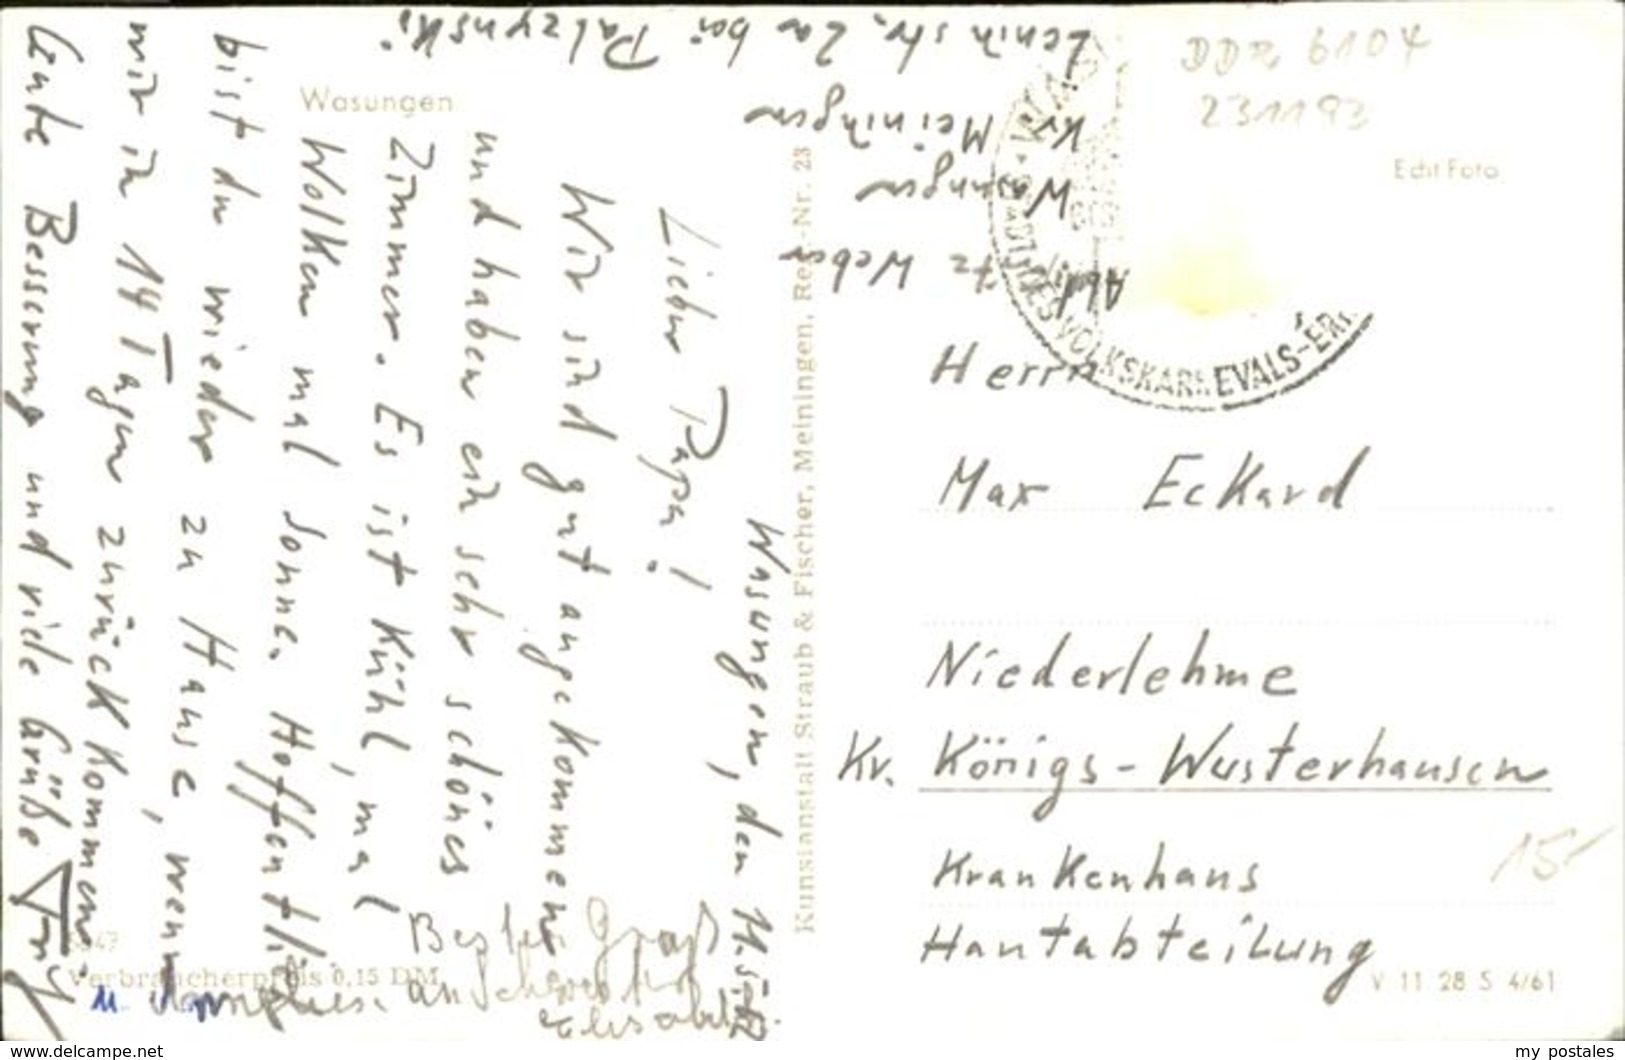 Wasungen
Wasungen, den 11.5.62
Lieber Papa!
Wir sind gut angekommen
und haben ein sehr schönes
Zimmer. Es ist Kühl, mal
Wolken mal Sonne. Hoffentlich
bist du wieder zu Hause, wenn
wir in 14 Tagen zurück kommen.
Gute Besserung und viele Grüße Fritz
Besten Gruß
an Schwester
Elisabeth
Verbraucherpreis 0,15 DM
Kunstanstalt Straub & Fischer, Meiningen, Reg.-Nr. 23
Abs. Fritz Weber
Wasungen
Kr. Meiningen
Leninstr. 2a bei Palzynski.
DDZ 6104
231193
Echt Foto
STADT DES VOLKSKARNEVALS
Herrn
Max Eckard
Niederlehme
Kr. Königs-Wusterhausen
Krankenhaus
Hautabteilung
15
V 11 28 S 4/61
www.delcampe.net
my_postales